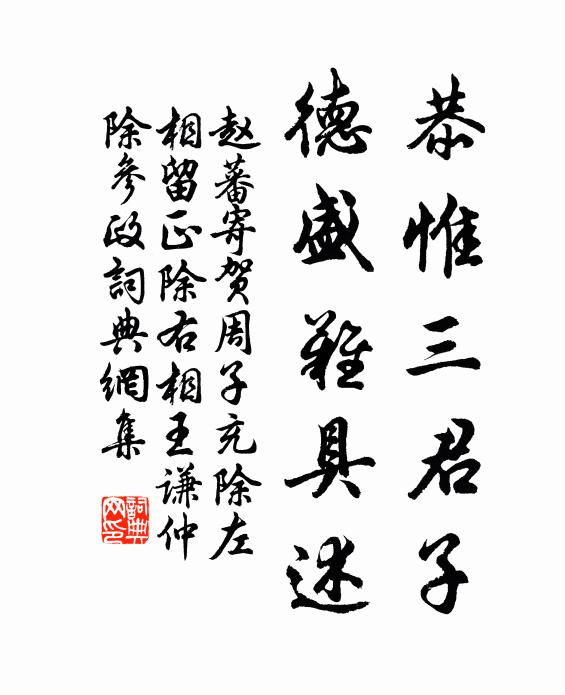 恭惟三君子
德盛難具述
赵蕃寄贺周子充除左
相留正除右相王谦仲
除参政詞典網集
詞典網印